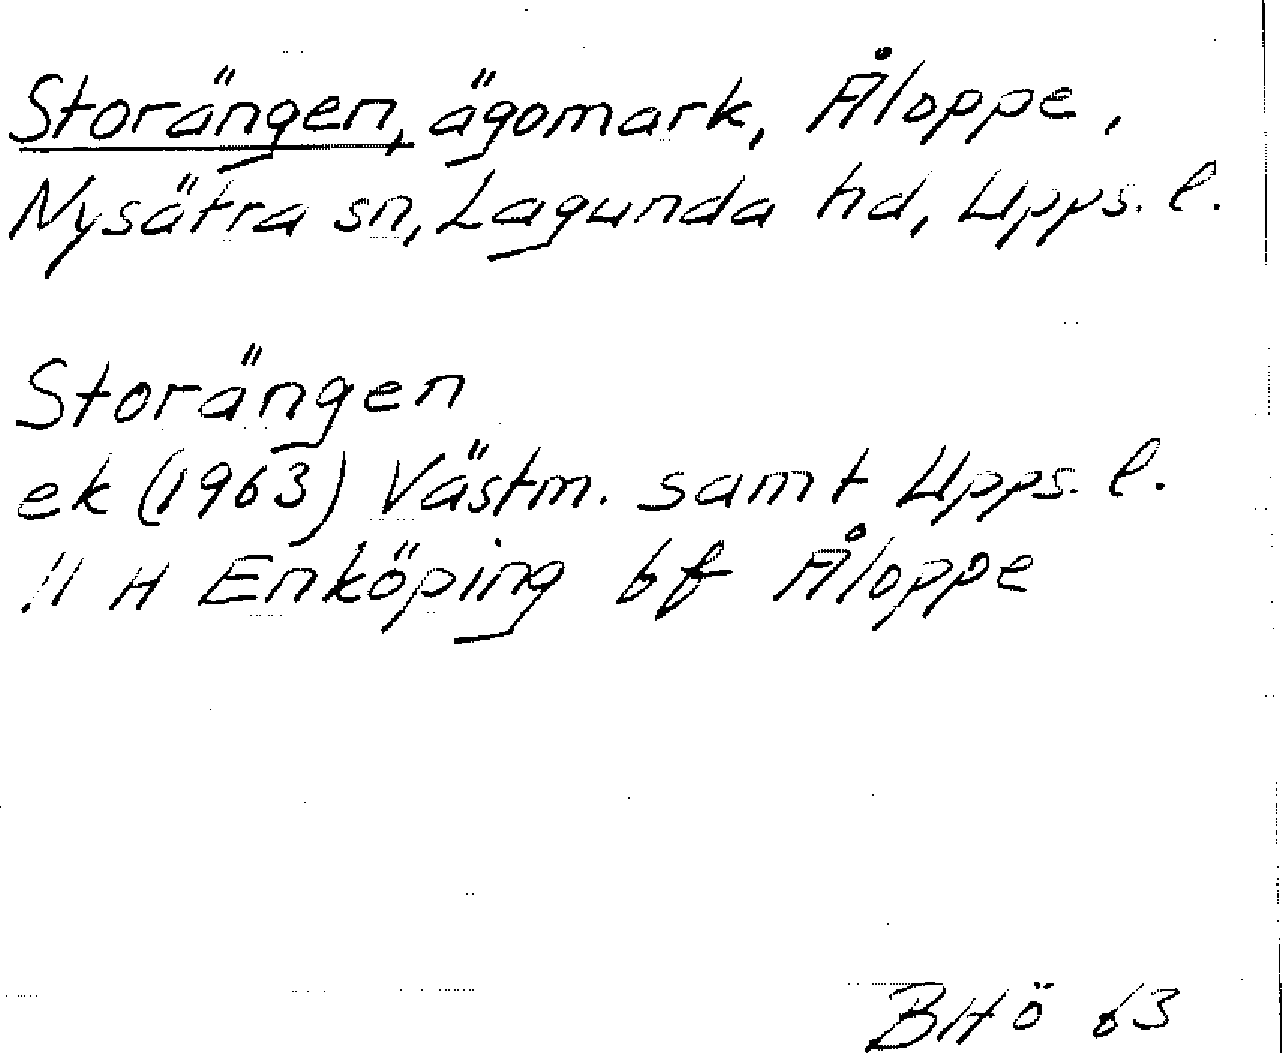 Storängen, ägomark, Åloppe,
Nysätra sn, Lagunda hd, Upps. l.
Storängen
ek (1963) Västm. samt Upps. l.
11 H Enköping bf Åloppe
BHÖ 63